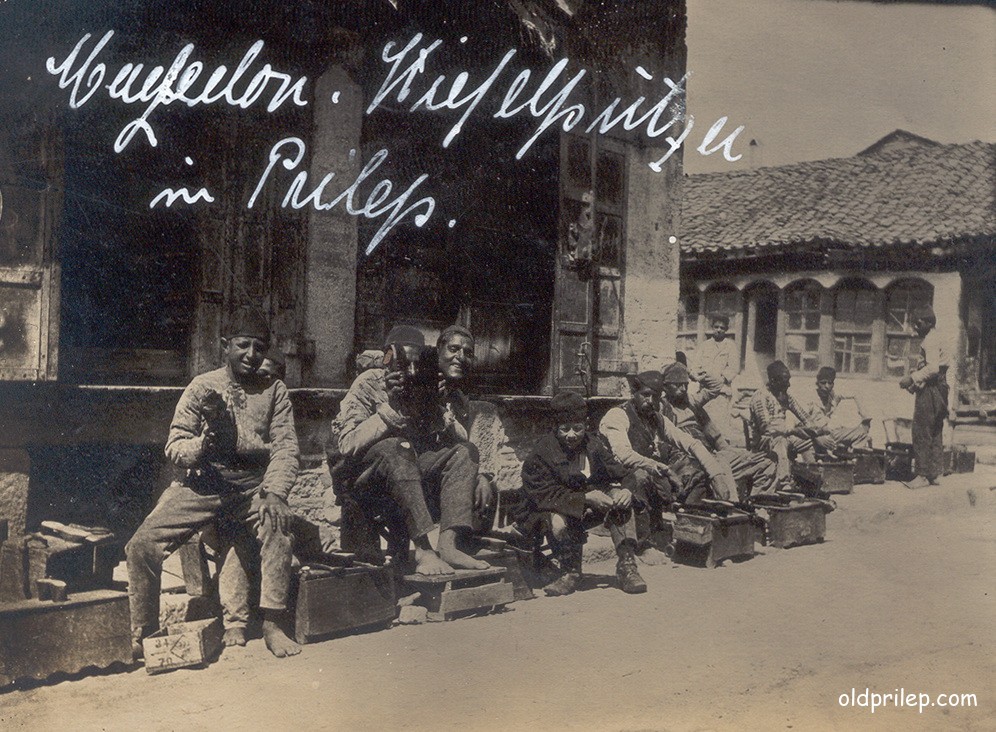 Mazedon. Stiefelputzer
in Prilep.
oldprilep.com